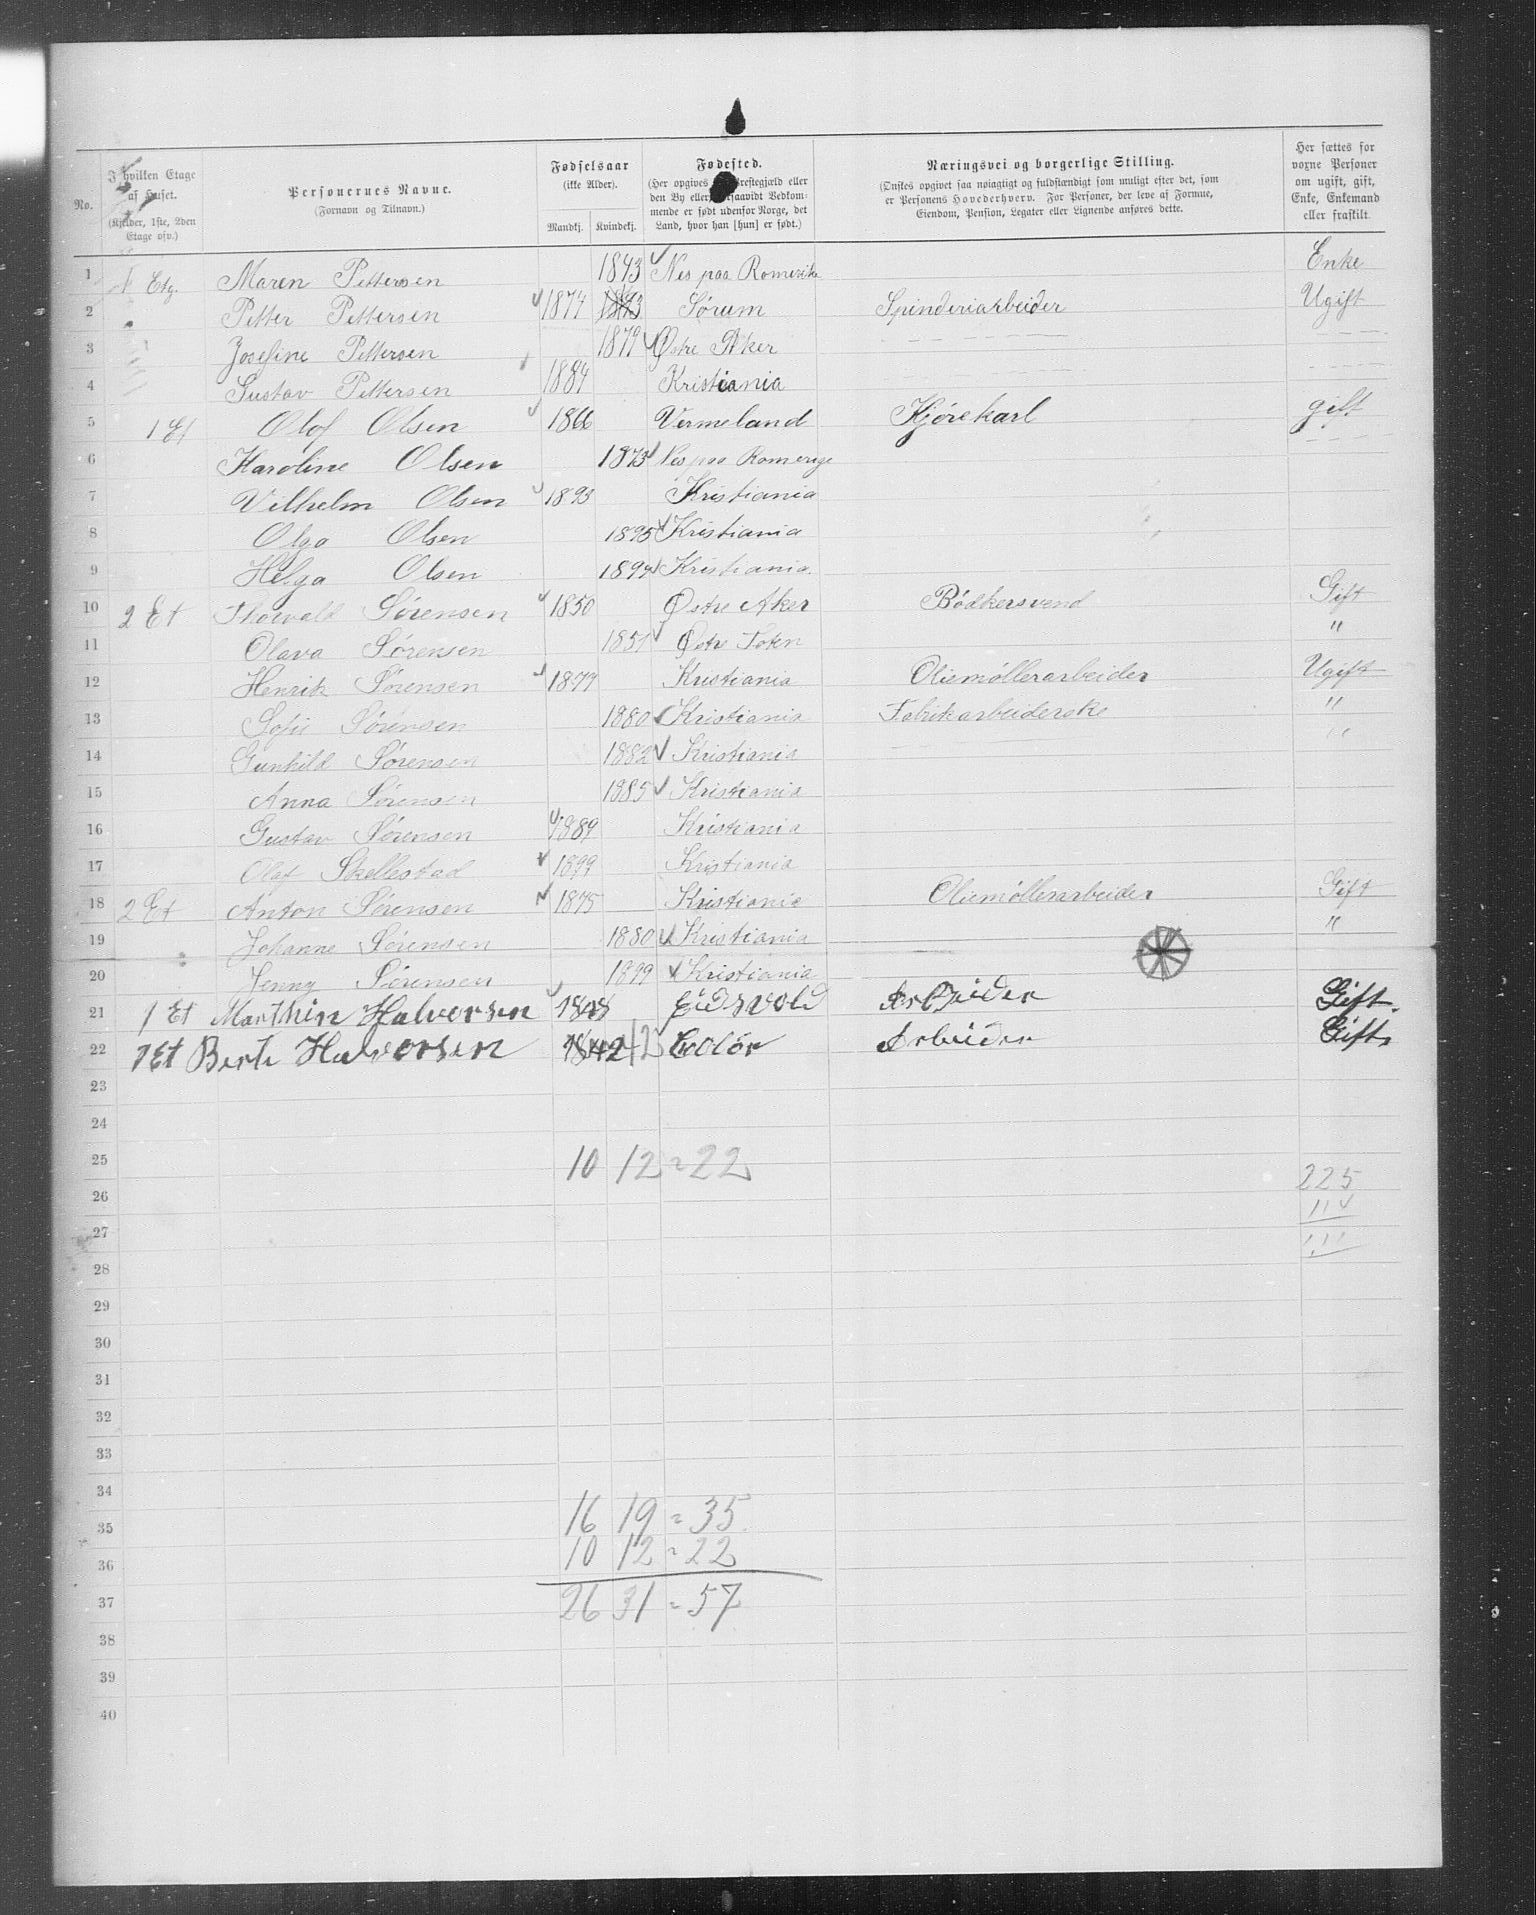 No.
I hvilken Etage af Huset.
(Kjelder, 1ste, 2den Etage osv.)
Personernes Navne.
(Fornavn og Tilnavn.)
Fødselsaar
(ikke Alder).
Mandkj. Kvindekj.
Fødested.
(Her opgives Prestegjæld eller
den By eller, forsaavidt Vedkom-
mende er født udenfor Norge, det
Land, hvor han [hun] er født.)
Næringsvei og borgerlige Stilling.
(Ønskes opgivet saa nøiagtigt og fuldstændigt som muligt efter det, som
er Personens Hovederhverv. For Personer, der leve af Formue,
Eiendom, Pension, Legater eller Lignende anføres dette.
Her sættes for
voxne Personer
om ugift, gift,
Enke, Enkemand
eller fraskilt.
1 1 Etg. Maren Pettersen 1843 Nes paa Romerike Enke
2 Petter Pettersen 1874 Sørum Spinderiarbeider Ugift
3 Josefine Pettersen 1879 Østre Aker
4 Gustav Pettersen 1884 Kristiania
5 1 Et Olof Olsen 1866 Vermeland Kjørekarl gift
6 Karoline Olsen 1873 Nes paa Romerige
7 Vilhelm Olsen 1893 Kristiania
8 Olga Olsen 1895 Kristiania
9 Helga Olsen 1897 Kristiania.
10 2 Et Thorvald Sørensen 1850 Østre Aker Bødkersvend Gift
11 Olava Sørensen 1851 Østre Toten "
12 Henrik Sørensen 1877 Kristiania Oliemøllerarbeider Ugift
13 Sofie Sørensen 1880 Kristiania Fabrikarbeiderske "
14 Gunhild Sørensen 1882 Kristiania "
15 Anna Sørensen 1885 Kristiania
16 Gustav Sørensen 1889 Kristiania
17 Olaf Skellestad 1899 Kristiania
18 2 Et Anton Sørensen 1875 Kristiania Oliemøllerarbeider Gift
19 Johanne Sørensen 1880 Kristiania "
20 Jenny Sørensen 1899 Kristiania
21 1 Et Marthin Halversen 1848 Eidsvold Arbeider Gift.
22 1 Et Berte Halvorsen 1842 42 Arbeider Gift.
23
24
25 10 12 = 22
26 225
27 114
111
28
29
30
31
32
33
34
35 16 19 = 35
36 10 12 = 22
37 26 31 = 57
38
39
40